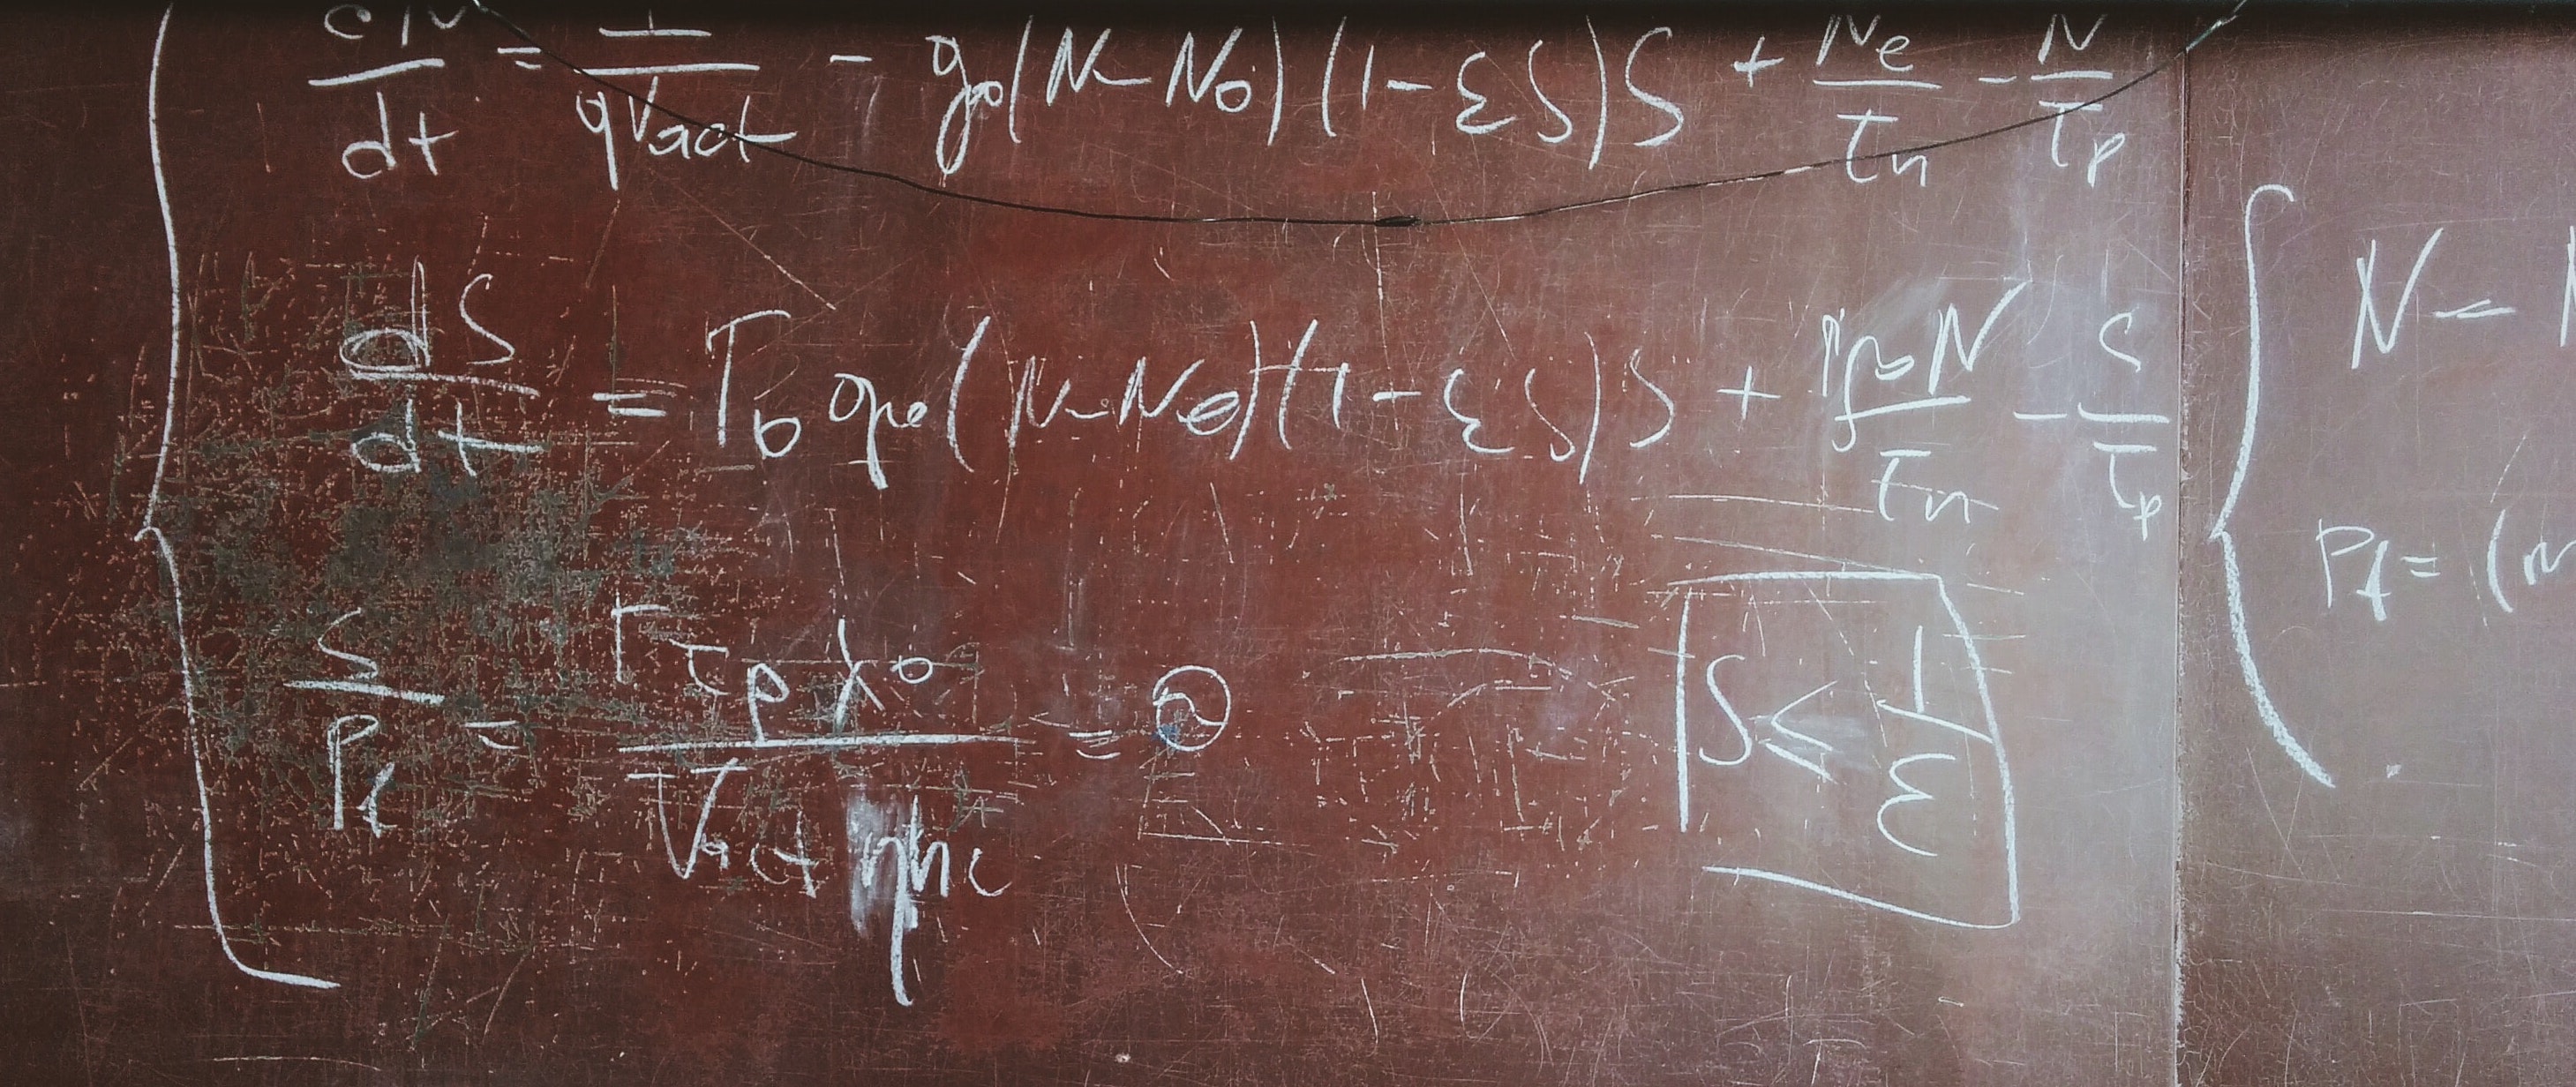 dN/dt = I/qVact - g₀(N-N₀)(1-εS)S + Ne/τn - N/τp
dS/dt = Γ₀g₀(N-N₀)(1-εS)S + ΓβN/τn - S/τp
S/Pf = Γτpλ₀/Vactηhc = 
S ≤ 1/ε
N -
Pf = (m